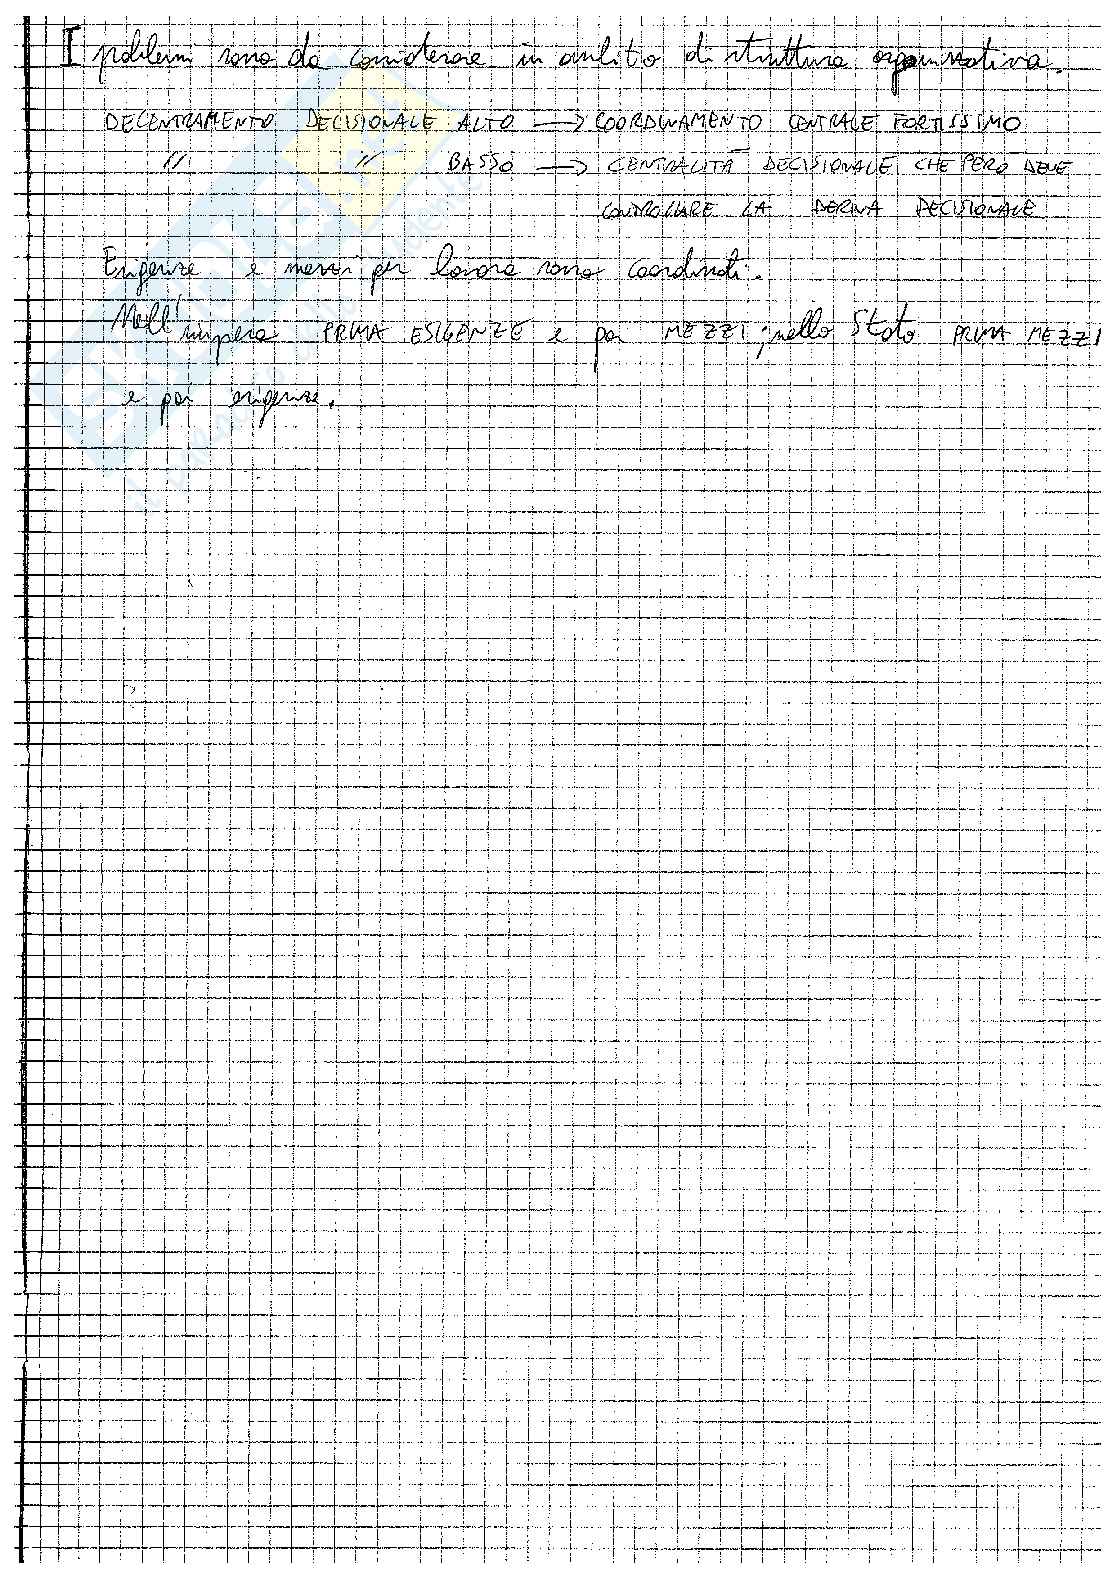 I problemi sono da considerare in ambito di struttura organizzativa.
DECENTRAMENTO DECISIONALE ALTO → COORDINAMENTO CENTRALE FORTISSIMO
" " BASSO → CENTRALITÀ DECISIONALE CHE PERÒ DEVE
CONTROLLARE LA DERIVA DECISIONALE
Esigenze e mezzi per lavoro sono coordinati.
Nell'impera PRIMA ESIGENZE e poi MEZZI; nello Stato PRIMA MEZZI
e poi esigenze.